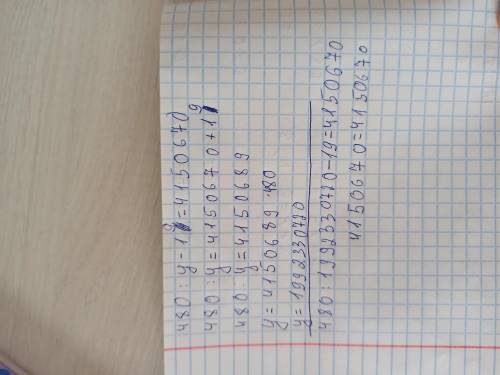 480 : y - 19 = 4150670
480 : y = 4150670 + 19
480 : y = 4150689
y = 4150689 · 480
y = 1992330720
480 : 1992330720 - 19 = 4150670
4150670 = 4150670